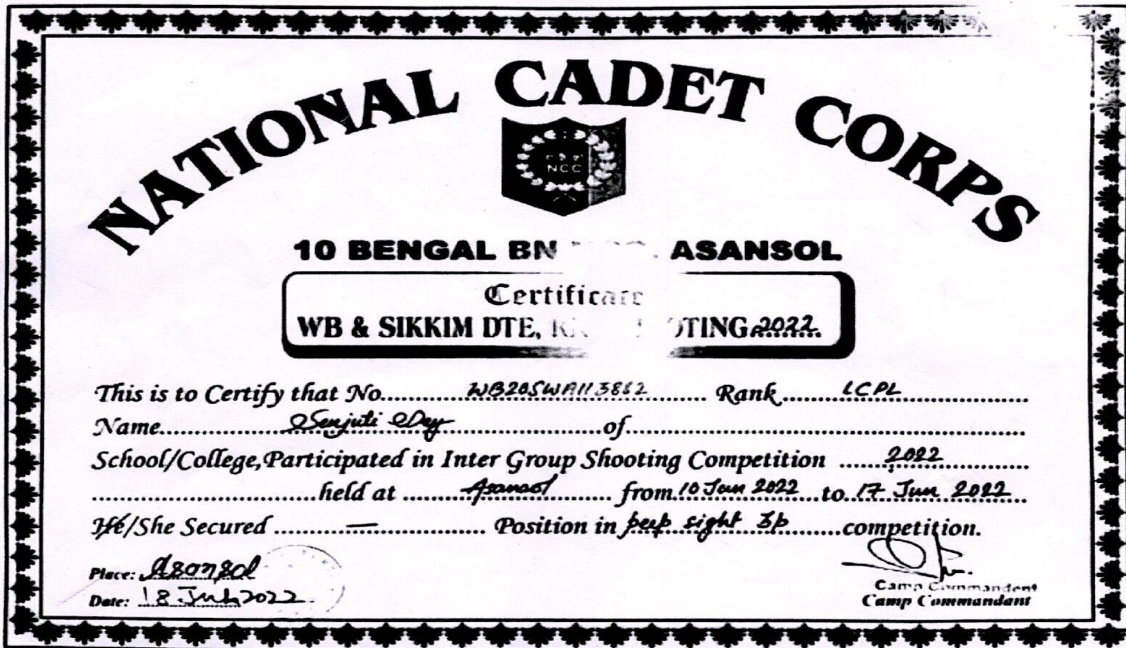 NATIONAL CADET CORPS
NCC
10 BENGAL BN ASANSOL
Certificate
WB & SIKKIM DTE, 2022
This is to Certify that No. Rank LCPL
Name Senjuti Dey of
School/College,Participated in Inter Group Shooting Competition 2022
held at Asansol from 10 Jun 2022 to 17 Jun 2022
He/She Secured — Position in peep sight 3p competition.
Place: Asansol
Date: 18 2022
Camp Commandent
Camp Commandant